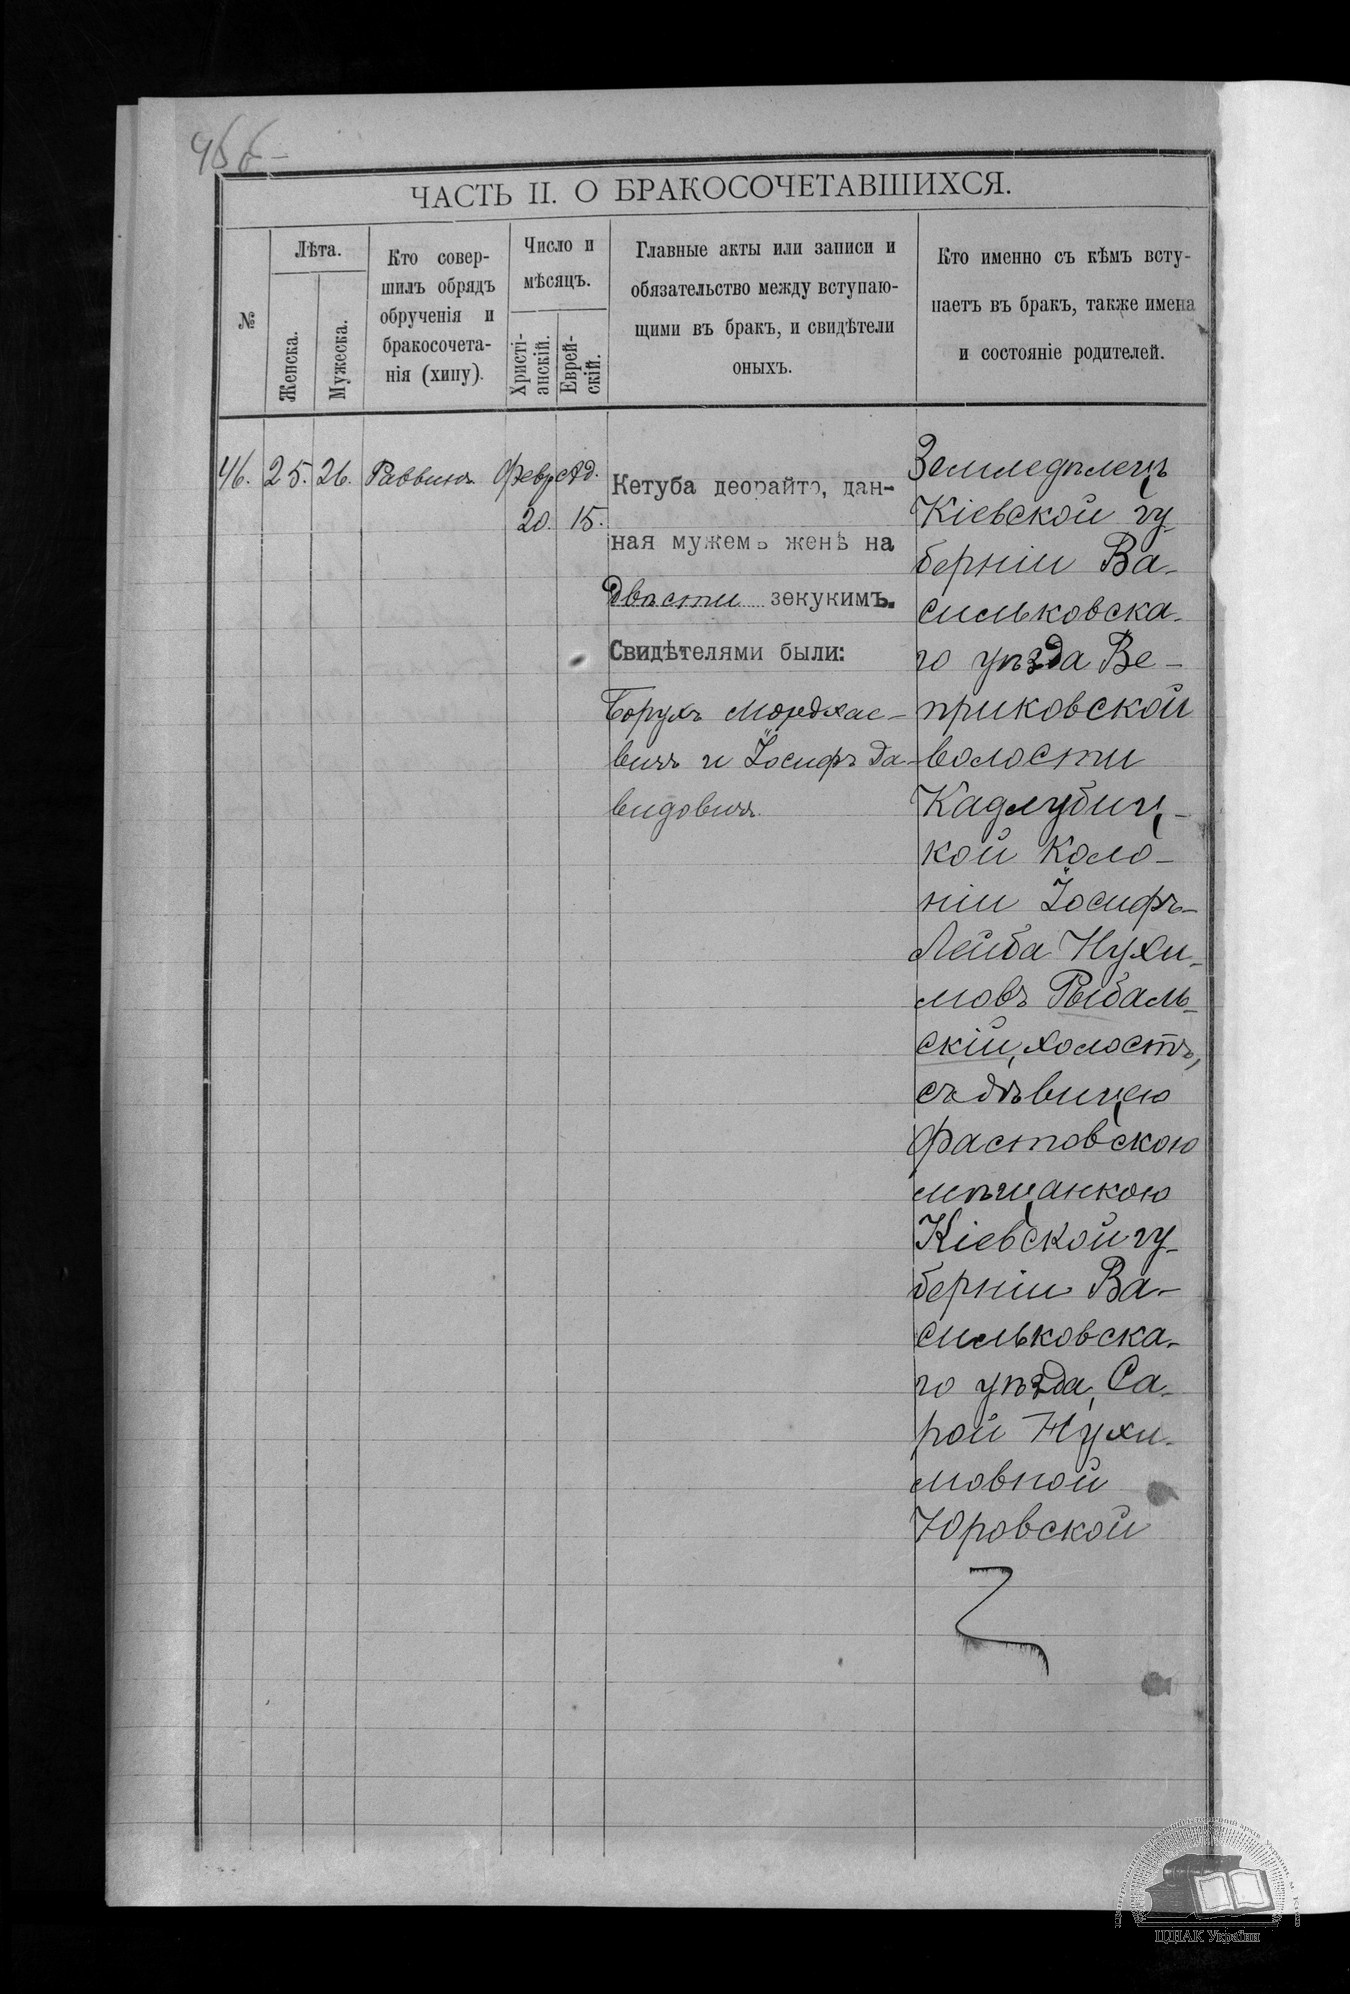 ЧАСТЬ II. О БРАКОСОЧЕТАВШИХСЯ.
№
Лѣта.
Женска.
Мужеска.
Кто совер-
шилъ обрядъ
обрученія и
бракосочета-
нія (хипу).
Число и
мѣсяцъ.
Христі-
анскій.
Еврей-
скій.
Главные акты или записи и
обязательство между вступаю-
щими въ бракъ, и свидѣтели
оныхъ.
Кто именно съ кѣмъ всту-
паетъ въ бракъ, также имена
и состояніе родителей.
46.
25.
26.
Раввинъ
Февр
20.
Ад.
15.
Кетуба деорайта, дан-
ная мужемъ женѣ на
Двѣсти зекукимъ.
Свидѣтелями были:
Борухъ Мордхае-
вичъ и Іосифъ Да-
видовичъ.
Земледѣлецъ
Кіевской гу-
берніи Ва-
сильковска-
го уѣзда Ве-
приковской
волости
Кадлубиц-
кой Коло-
ніи Іосифъ-
Лейба Нухи-
мовъ Рыбаль-
скій, холостъ,
съ дѣвицею
Фастовскою
мѣщанкою
Кіевской гу-
берніи Ва-
сильковска-
го уѣзда, Са-
рой Нухи-
мовной
Юровской
ЦДІАК України